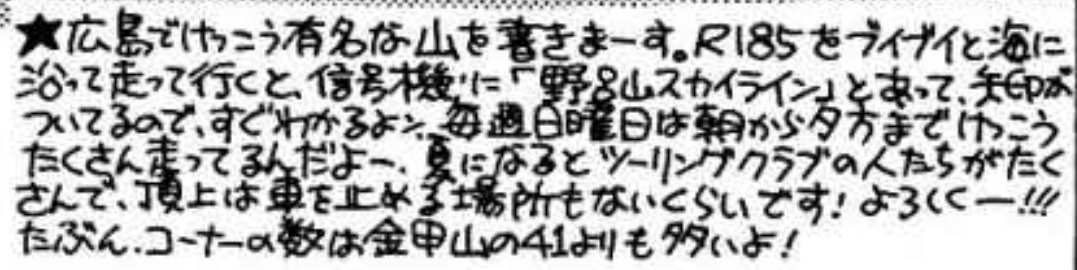 ★広島でけっこう有名な山を書きまーす。R185をブイブイと海に
沿って走って行くと、信号機に「野呂山スカイライン」とあって、矢印が
ついてるので、すぐわかるよン。毎週日曜日は朝から夕方までけっこう
たくさん走ってるんだよー、夏になるとツーリングクラブの人たちがたく
さんで、頂上は車を止める場所もないくらいです！よろしくー!!!
たぶん、コーナーの数は金甲山の41よりも多いよ！